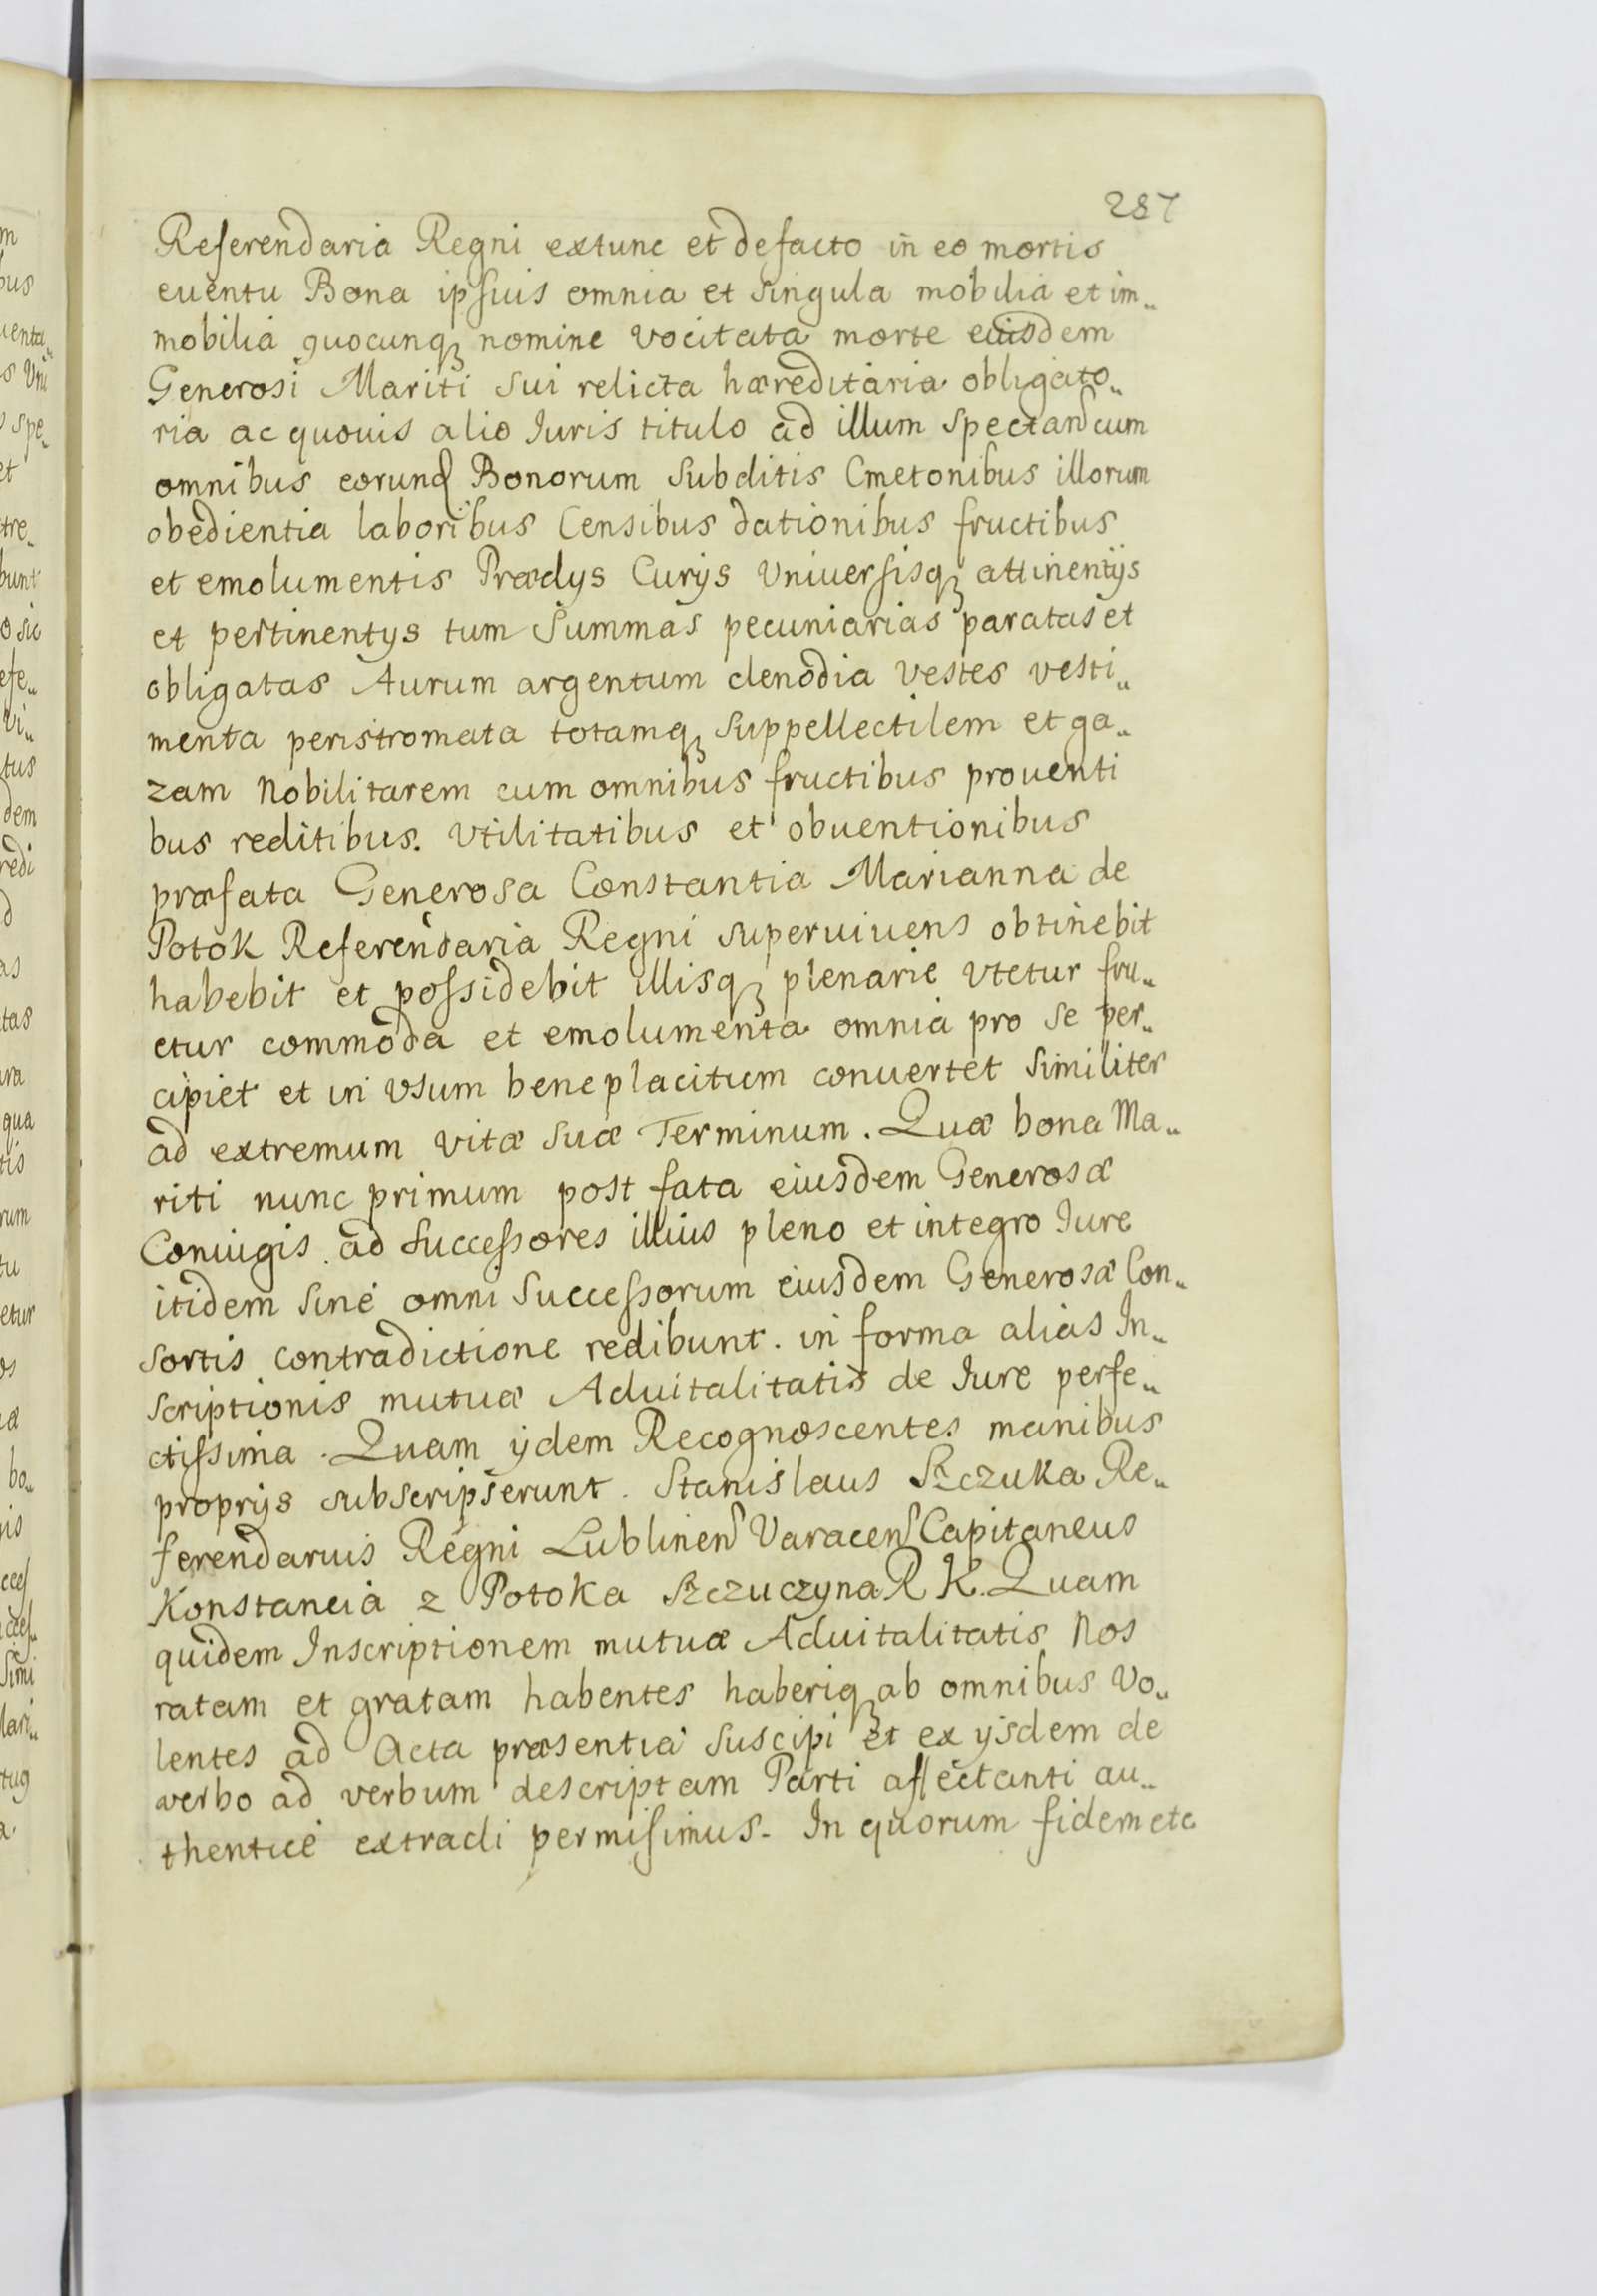 287
Referendaria Regni extunc et defacto in eo mortis
euentu Bona ipsius omnia et singula mobilia et im„
mobilia quocunq nomine vocitata morte eiusdem
Generosi Mariti sui relicta hæreditaria obligato„
ria ac quouis alio Iuris titulo ad illum spectan cum
omnibus eorund Bonorum subditis Cmetonibus illorum
obedientia laboribus Censibus dationibus fructibus
et emolumentis Prædys Curÿs Vniuersisq attinentÿs
et pertinentys tum Summas pecuniarias paratas et
obligatas Aurum argentum clenodia vestes vesti„
menta peristromata totamq suppellectilem et ga„
zam Nobilitarem cum omnibus fructibus prouenti
bus reditibus. vtilitatibus et obuentionibus
præfata Generosa Constantia Marianna de
Potok Referendaria Regni superuiuens obtinebit
habebit et possidebit illisq plenarie vtetur fru„
etur commoda et emolumenta omnia pro se per„
cipiet et in vsum beneplacitum conuertet similiter
ad extremum vitæ suæ Terminum. Quæ bona Ma„
riti nunc primum post fata eiusdem Generosæ
Coniugis ad successores illius pleno et integro Iure
itidem sine omni successorum eiusdem Generosæ Con„
sortis contradictione redibunt. in forma alias In„
scriptionis mutuæ Aduitalitatis de Iure perfe„
ctissima. Quam ÿdem Recognoscentes manibus
proprÿs subscripserunt. Stanislaus Szczuka Re„
ferendarius Regni Lublinen Varacen Capitaneus
Konstancia z Potoka Szczuczyna R K. Quam
quidem Inscriptionem mutuæ Aduitalitatis Nos
ratam et gratam habentes haberiq ab omnibus Vo„
lentes ad Acta præsentia suscipi et ex ÿsdem de
verbo ad verbum descriptam Parti affectanti au„
thentice extradi permisimus. In quorum fidem etc